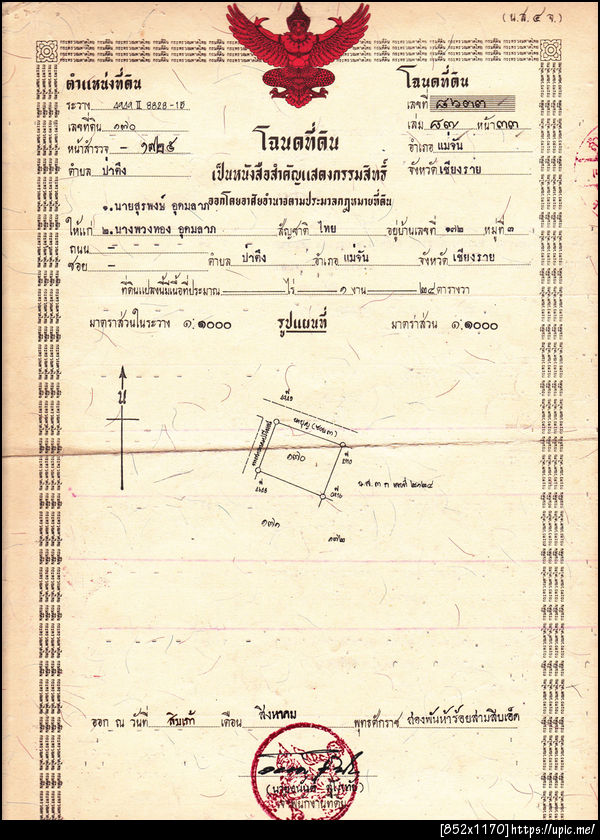 (น.ส. ๔ จ.)
ตำแหน่งที่ดิน
โฉนดที่ดิน
ระวาง II 8828-15
เลขที่ ๘๖๓๓
เลขที่ดิน ๑๗๐
เล่ม ๘๗ หน้า ๓๓
หน้าสำรวจ ๑๗๒๕
อำเภอ แม่จัน
ตำบล ป่าตึง
จังหวัด เชียงราย
โฉนดที่ดิน
เป็นหนังสือสำคัญแสดงกรรมสิทธิ์
ออกโดยอาศัยอำนาจตามประมวลกฎหมายที่ดิน
๑. นายสุรพงษ์ อุดมลาภ
ให้แก่ ๒. นางพวงทอง อุดมลาภ สัญชาติ ไทย อยู่บ้านเลขที่ ๑๗๒ หมู่ที่ ๓
ถนน –
ซอย – ตำบล ป่าตึง อำเภอ แม่จัน จังหวัด เชียงราย
ที่ดินแปลงนี้มีเนื้อที่ประมาณ ไร่ ๑ งาน ๒๔ ตารางวา
มาตราส่วนในระวาง ๑:๑๐๐๐ รูปแผนที่ มาตราส่วน ๑:๑๐๐๐
น
๑๗๐
น.ส. ๓ ก เลขที่ ๒๓๒๔
๑๗๑
๑๗๒
ออก ณ วันที่ สิบเก้า เดือน สิงหาคม พุทธศักราช สองพันห้าร้อยสามสิบเอ็ด
เจ้าพนักงานที่ดิน
[852x1170]https://upic.me/